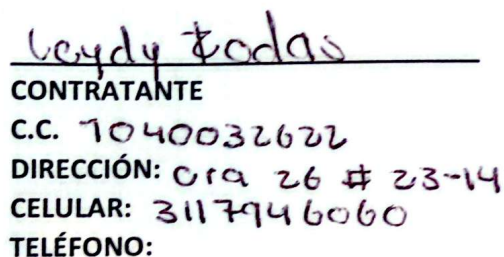 Leydy Rodas
CONTRATANTE
C.C. 1040032622
DIRECCIÓN: cra 26 # 23-14
CELULAR: 3117946060
TELÉFONO: